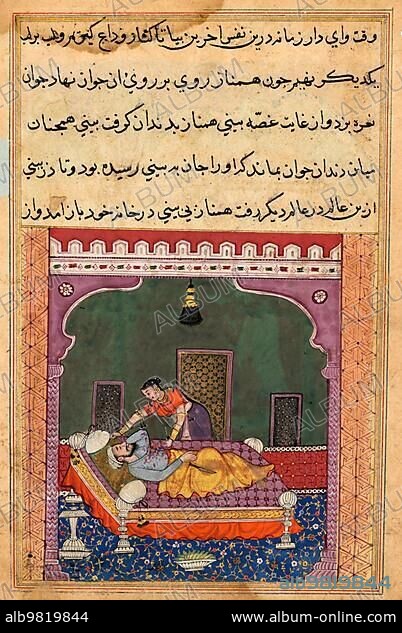 وقت وای دار زمانه درین نفس آخرین بیا تا کنار و وداع کنیم و لب بر لب
یکدیگر نهیم چون همناز روی بر روی آن جوان نهاد جوان
نعره بزد و از غایت غصه بینی همناز بدندان گرفت بینی همچنان
میان دندان جوان بماند کرا و را جان به بینی رسیده بود و تا در بینی
ازین عالم در عالم دیگر رفت همناز بی بینی در خانه خود باز آمد و از
ALBUM
alb9819844
alb9819844
www.album-online.com